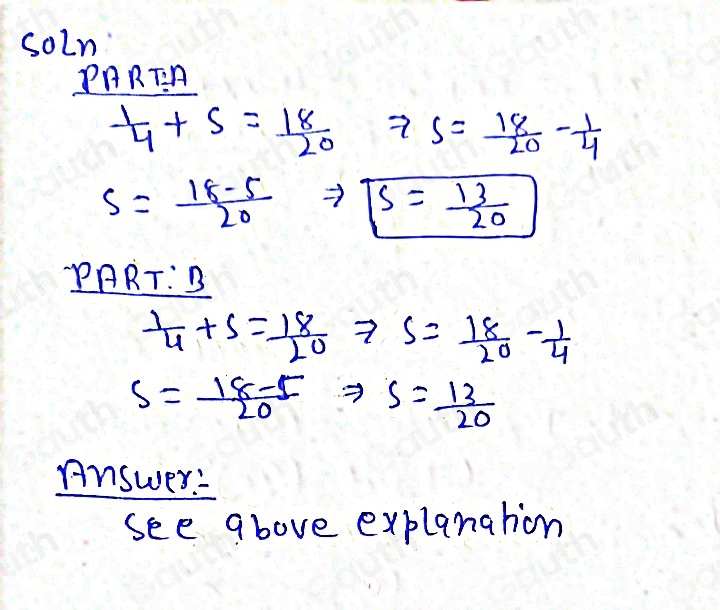 Soln
PART:A
1/4 + S = 18/20 ⇒ S = 18/20 - 1/4
S = 18-5/20 ⇒ S = 13/20
PART: B
1/4 + S = 18/20 ⇒ S = 18/20 - 1/4
S = 18-5/20 ⇒ S = 13/20
Answer:-
See above explanation